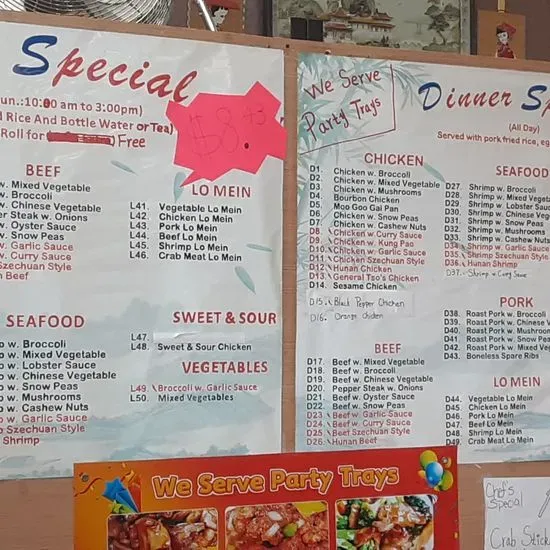 Special
un.:10:00 am to 3:00pm)
d Rice And Bottle Water or Tea)
Roll for Free
$8.
BEEF
w. Mixed Vegetable
w. Broccoli
w. Chinese Vegetable
er Steak w. Onions
w. Oyster Sauce
w. Snow Peas
w. Garlic Sauce
w. Curry Sauce
Szechuan Style
n Beef
LO MEIN
L41. Vegetable Lo Mein
L42. Chicken Lo Mein
L43. Pork Lo Mein
L44. Beef Lo Mein
L45. Shrimp Lo Mein
L46. Crab Meat Lo Mein
SEAFOOD
p w. Broccoli
p w. Mixed Vegetable
p w. Lobster Sauce
p w. Chinese Vegetable
p w. Snow Peas
p w. Mushrooms
p w. Cashew Nuts
p w. Garlic Sauce
p w. Curry Sauce
p Szechuan Style
Shrimp
SWEET & SOUR
L47.
L48. Sweet & Sour Chicken
VEGETABLES
L49. Broccoli w. Garlic Sauce
L50. Mixed Vegetables
We Serve
Party Trays
Dinner Sp
(All Day)
Served with pork fried rice, eg
CHICKEN
D1. Chicken w. Broccoli
D2. Chicken w. Mixed Vegetable
D3. Chicken w. Mushrooms
D4. Bourbon Chicken
D5. Moo Goo Gai Pan
D6. Chicken w. Snow Peas
D7. Chicken w. Cashew Nuts
D8. Chicken w. Curry Sauce
D9. Chicken w. Kung Pao
D10. Chicken w. Garlic Sauce
D11. Chicken Szechuan Style
D12. Hunan Chicken
D13. General Tso's Chicken
D14. Sesame Chicken
D15. Black Pepper Chicken
D16. Orange Chicken
BEEF
D17. Beef w. Mixed Vegetable
D18. Beef w. Broccoli
D19. Beef w. Chinese Vegetable
D20. Pepper Steak w. Onions
D21. Beef w. Oyster Sauce
D22. Beef w. Snow Peas
D23. Beef w. Garlic Sauce
D24. Beef w. Curry Sauce
D25. Beef Szechuan Style
D26. Hunan Beef
SEAFOO
D27. Shrimp w. Broccoli
D28. Shrimp w. Mixed Vegeta
D29. Shrimp w. Lobster Sauc
D30. Shrimp w. Chinese Vege
D31. Shrimp w. Snow Peas
D32. Shrimp w. Mushrooms
D33. Shrimp w. Cashew Nuts
D34. Shrimp w. Garlic Sauce
D35. Shrimp Szechuan Style
D36. Hunan Shrimp
D37. Shrimp w. Curry Sauce
PORK
D38. Roast Pork w. Broccoli
D39. Roast Pork w. Chinese V
D40. Roast Pork w. Mushroom
D41. Roast Pork w. Snow Peas
D42. Roast Pork w. Mixed Ve
D43. Boneless Spare Ribs
LO MEIN
D44. Vegetable Lo Mein
D45. Chicken Lo Mein
D46. Pork Lo Mein
D47. Beef Lo Mein
D48. Shrimp Lo Mein
D49. Crab Meat Lo Mein
We Serve Party Trays
Chef's
Special
Crab Stick